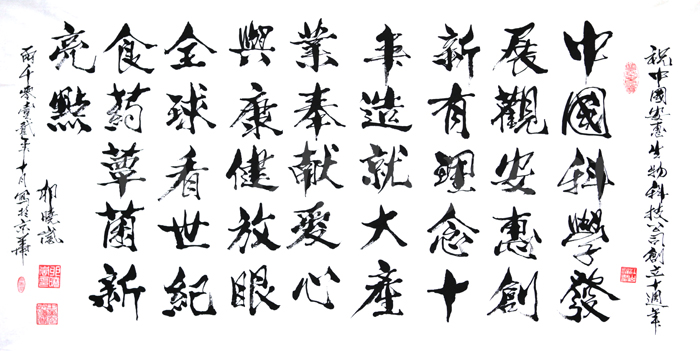 祝中國安惠生物科技公司創立十週年
中國科學發
展觀安惠創
新有理念十
年造就大產
業奉獻愛心
與康健放眼
全球看世紀
食葯蕈菌新
亮點
兩千零壹貳年十月寫於京華